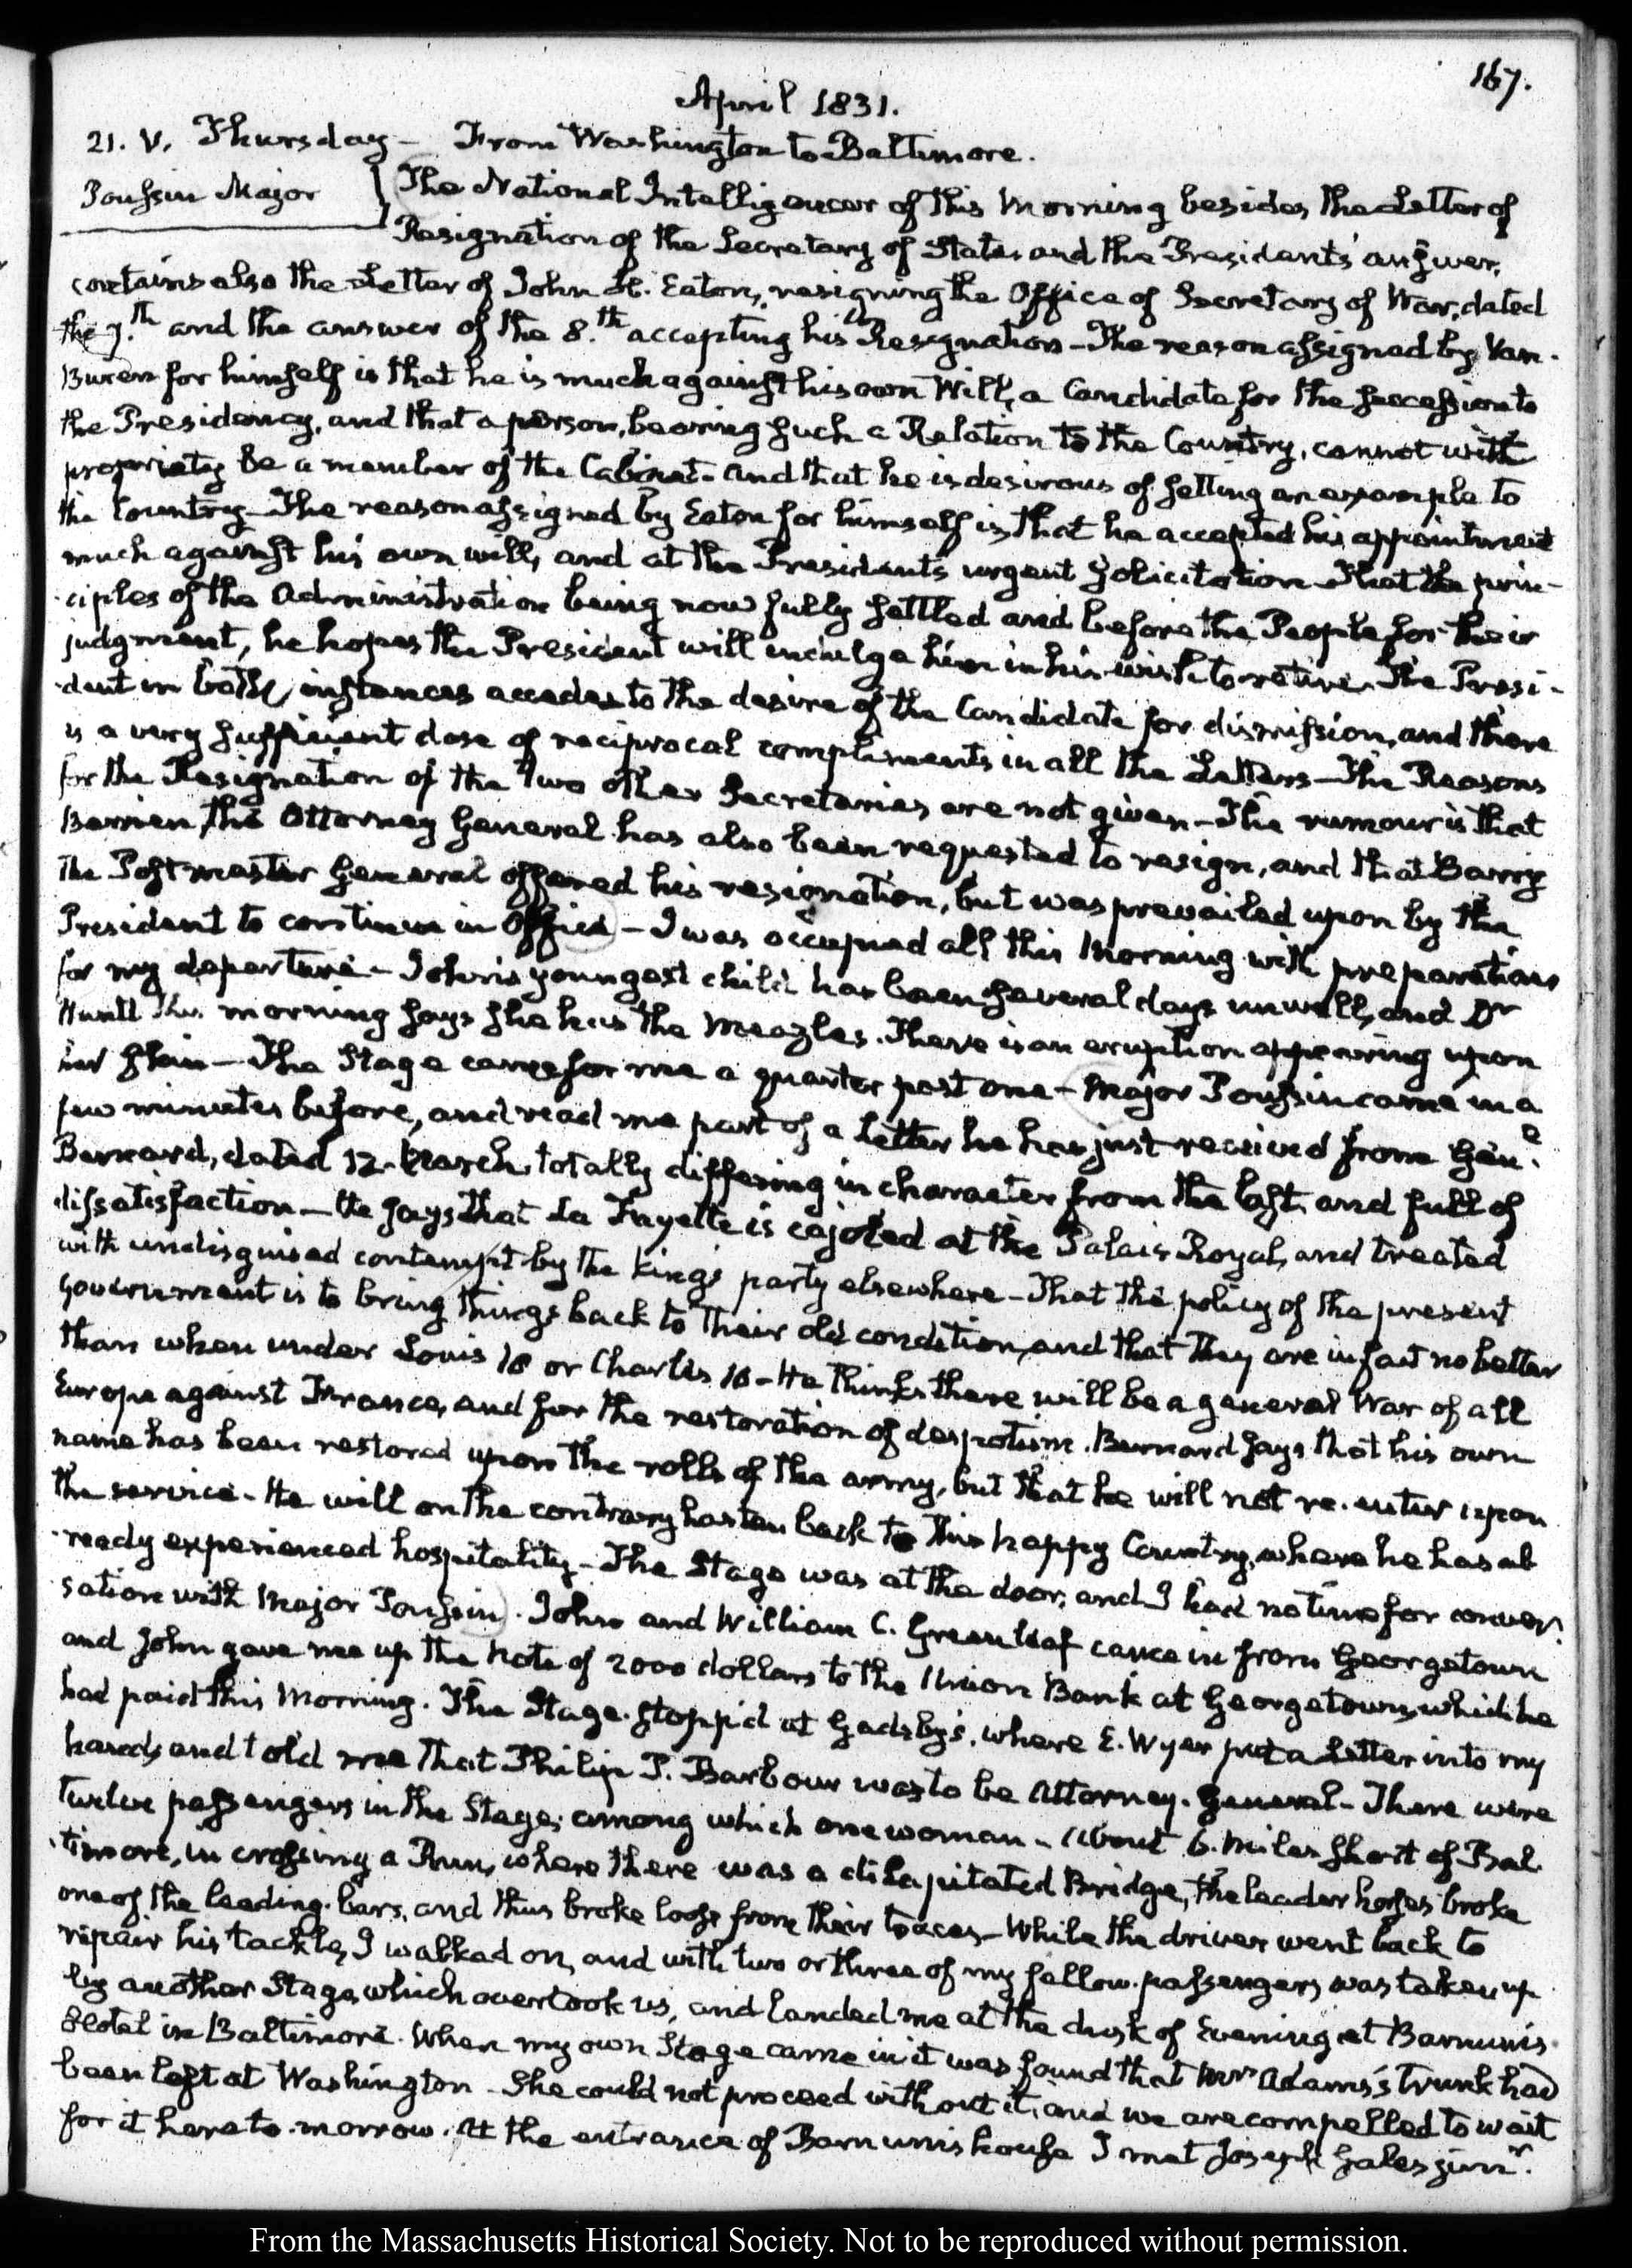 167.
April 1831.
21. V. Thursday — From Washington to Baltimore.
Poussin Major
The National Intelligencer of this Morning besides the Letter of
Resignation of the Secretary of State, and the President's answer,
contains also the Letter of John H. Eaton, resigning the Office of Secretary of War, dated
the 7.th and the answer of the 8.th accepting his Resignation — The reason assigned by Van-
Buren for himself is that he is much against his own Will, a Candidate for the succession to
the Presidency, and that a person, bearing such a Relation to the Country, cannot with
propriety be a member of the Cabinet — and that he is desirous of setting an example to
the Country — The reason assigned by Eaton for himself is, that he accepted his appointment
much against his own will, and at the President's urgent solicitation — That the prin-
ciples of the Administration being now fully settled and before the People for their
judgment, he hopes the President will indulge him in his wish to retire. The Presi-
dent in both instances accedes to the desire of the Candidate for dismission, and there
is a very sufficient dose of reciprocal compliments in all the Letters — The Reasons
for the Resignation of the two other Secretaries are not given — The rumour is that
Berrien, the Attorney General has also been requested to resign, and that Barry
the Postmaster General offered his resignation, but was prevailed upon by the
President to continue in Office — I was occupied all this Morning with preparations
for my departure — John's youngest child has been several days unwell, and Dr
Huntt this morning says she has the Meazles. There is an eruption appearing upon
her skin — The Stage came for me a quarter past one — Major Poussin came in a
few minutes before, and read me part of a Letter he has just received from Gen.l
Bernard, dated 12. March, totally differing in character from the last, and full of
dissatisfaction — He says that La Fayette is cajoled at the Palais Royal, and treated
with undisguised contempt by the king's party elsewhere — That the policy of the present
Government is to bring things back to their old condition, and that they are in fact no better
than when under Louis 18 or Charles 10 — He thinks there will be a general War of all
Europe against France, and for the restoration of despotism. Bernard says that his own
name has been restored upon the rolls of the army, but that he will not re-enter upon
the service — He will on the contrary hasten back to this happy Country, where he has al-
ready experienced hospitality — The Stage was at the door, and I had no time for conver-
sation with Major Poussin. John and William C. Greenleaf came in from Georgetown
and John gave me up the Note of 2000 dollars to the Union Bank at Georgetown, which he
had paid this Morning. The Stage stopp'd at Gadsby's, where E. Wyer put a Letter into my
hands, and told me that Philip P. Barbour was to be Attorney-General — There were
twelve passengers in the Stage, among which one woman — About 6. Miles short of Bal-
timore, in crossing a Run, where there was a dilapitated Bridge, the leader horses broke
one of the leading-bars, and thus broke loose from their traces — While the driver went back to
repair his tackle, I walked on, and with two or three of my fellow-passengers was taken up
by another Stage, which overtook us, and landed me at the dusk of Evening at Barnum's
Hotel in Baltimore. When my own Stage came in it was found that Mrs Adams's trunk had
been left at Washington — She could not proceed without it, and we are compelled to wait
for it here to-morrow. At the entrance of Barnum's house I met Joseph Gales junr.
From the Massachusetts Historical Society. Not to be reproduced without permission.